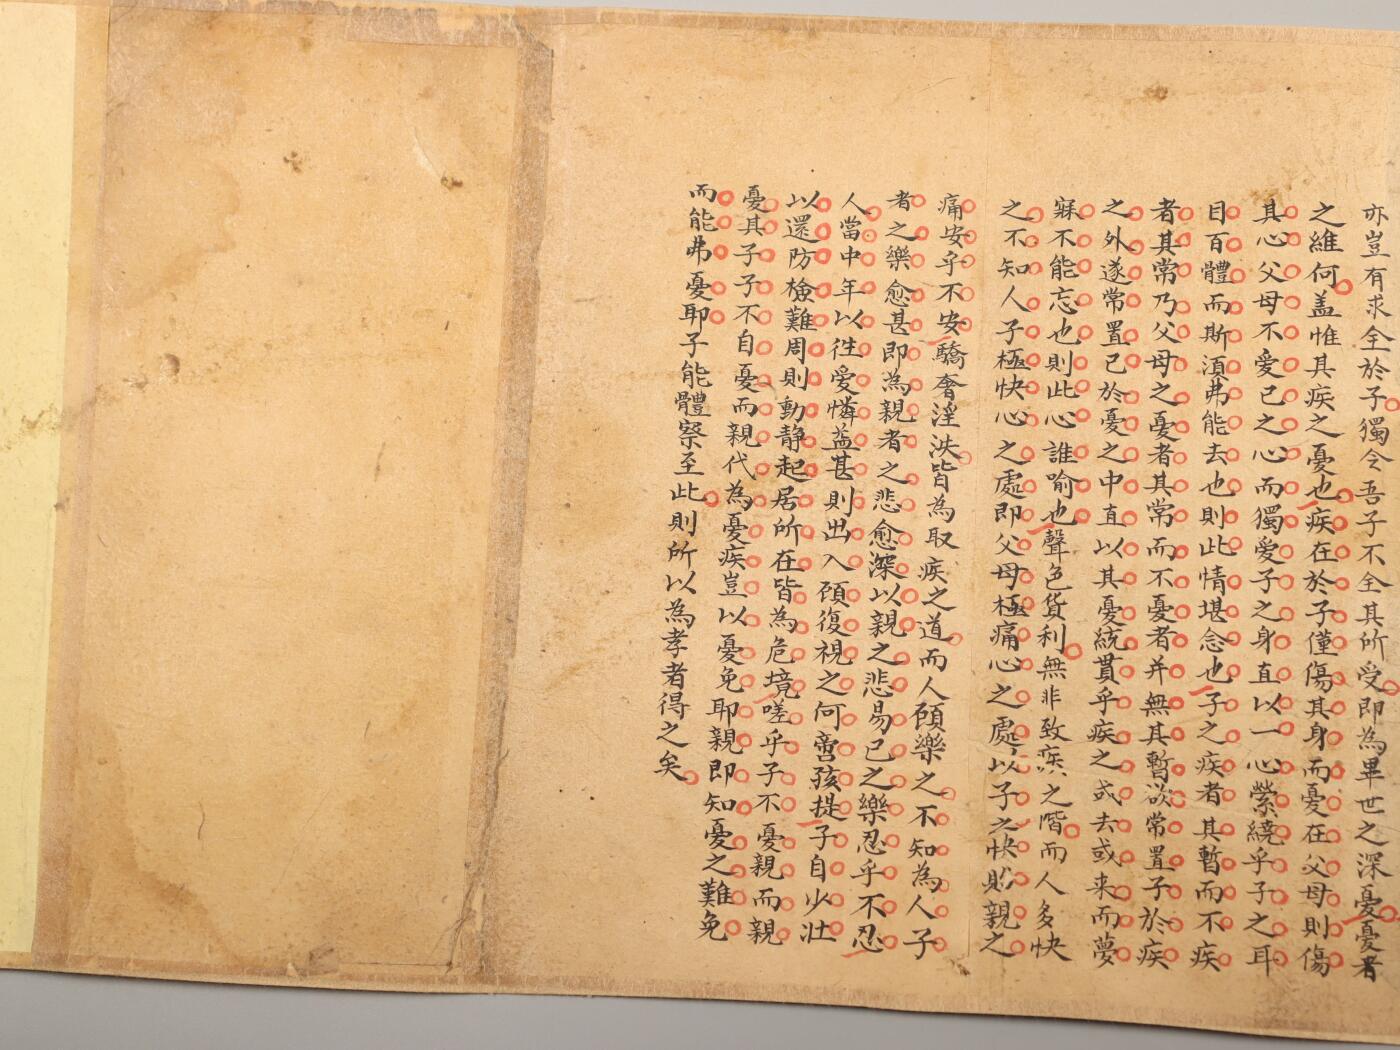 亦豈有求全於子獨令吾子不全其所受即為畢世之深憂憂者
之維何盖惟其疾之憂也疾在於子僅傷其身而憂在父母則傷
其心父母不愛已之心而獨愛子之身直以一心縈繞乎子之耳
目百體而斯須弗能去也則此情堪念也子之疾者其暫而不疾
者其常乃父母之憂者其常而不憂者并無其暫欲常置子於疾
之外遂常置已於憂之中直以其憂統貫乎疾之或去或来而夢
寐不能忘也則此心誰喻也聲色貨利無非致疾之階而人多快
之不知人子極快心之處即父母極痛心之處以子之快貽親之
痛安乎不安驕奢淫泆皆為取疾之道而人顧樂之不知為人子
者之樂愈甚即為親者之悲愈深以親之悲易已之樂忍乎不忍
人當中年以徃愛憐益甚則出入顧復視之何啻孩提子自少壮
以還防檢難周則動静起居所在皆為危境嗟乎子不憂親而親
憂其子子不自憂而親代為憂疾豈以憂免耶親即知憂之難免
而能弗憂耶子能體察至此則所以為孝者得之矣